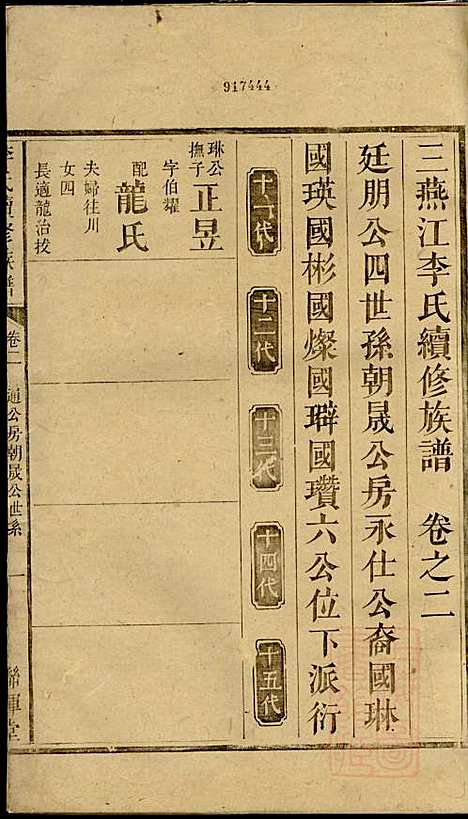 917444
三燕江李氏續修族譜 卷之二
廷朋公四世孫朝晟公房永仕公裔國琳
國瑛國彬國燦國璧國瓚六公位下派衍
十一代
十二代
十三代
十四代
十五代
琳公
撫子
正昱
字伯耀
配
龍氏
夫婦往川
女四
長適龍治拔
李氏續修族譜
卷二
通公房朝晟公世系
一